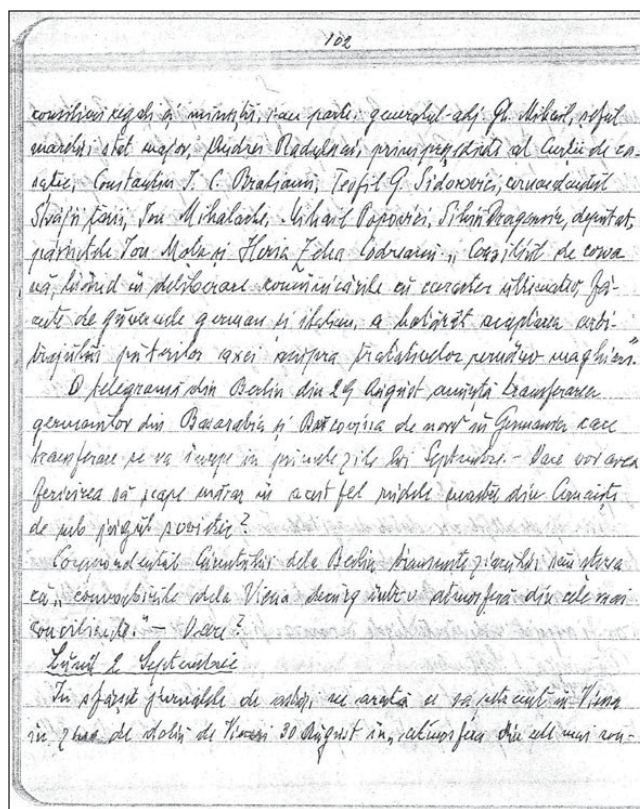 102
consilieri regali și miniștri, iau parte, generalul-adj. Gh. Mihail, șeful
marelui stat major, Andrei Rădulescu, prim președinte al Curții de ca-
sație, Constantin I. C. Bratianu, Teofil G. Sidorovici, comandantul
Străjii țării, Ion Mihalache, Mihail Popovici, Silviu Dragomir, deputat,
părintele Ion Moța și Horia Zelea Codreanu „ Consiliul de coroa
nă, luând în deliberare comunicările cu caracter ultimativ, fă-
cute de guvernele german și italian, a hotărât acceptarea arbi-
trajului puterilor axei asupra tratativelor româno maghiare."
O telegramă din Berlin din 29 August anunță transferarea
germanilor din Basarabia și Bucovina de nord în Germania care
transferare se va începe în primele zile lui Septembrie. - Oare vor avea
fericirea să scape măcar în acest fel rudele noastre din Cernăuți
de sub jugul sovietic?
Corespondentul Curentului dela Berlin transmite ziarului său știrea
că „ convorbirile dela Viena decurg într'o atmosferă din cele mai
conciliante." - Oare?
Luni 2 Septembrie
In sfârșit jurnalele de astăzi, ne arată ce s'a petrecut în Viena
in ziua de doliu de Vineri 30 August in „ atmosfera din cele mai con-